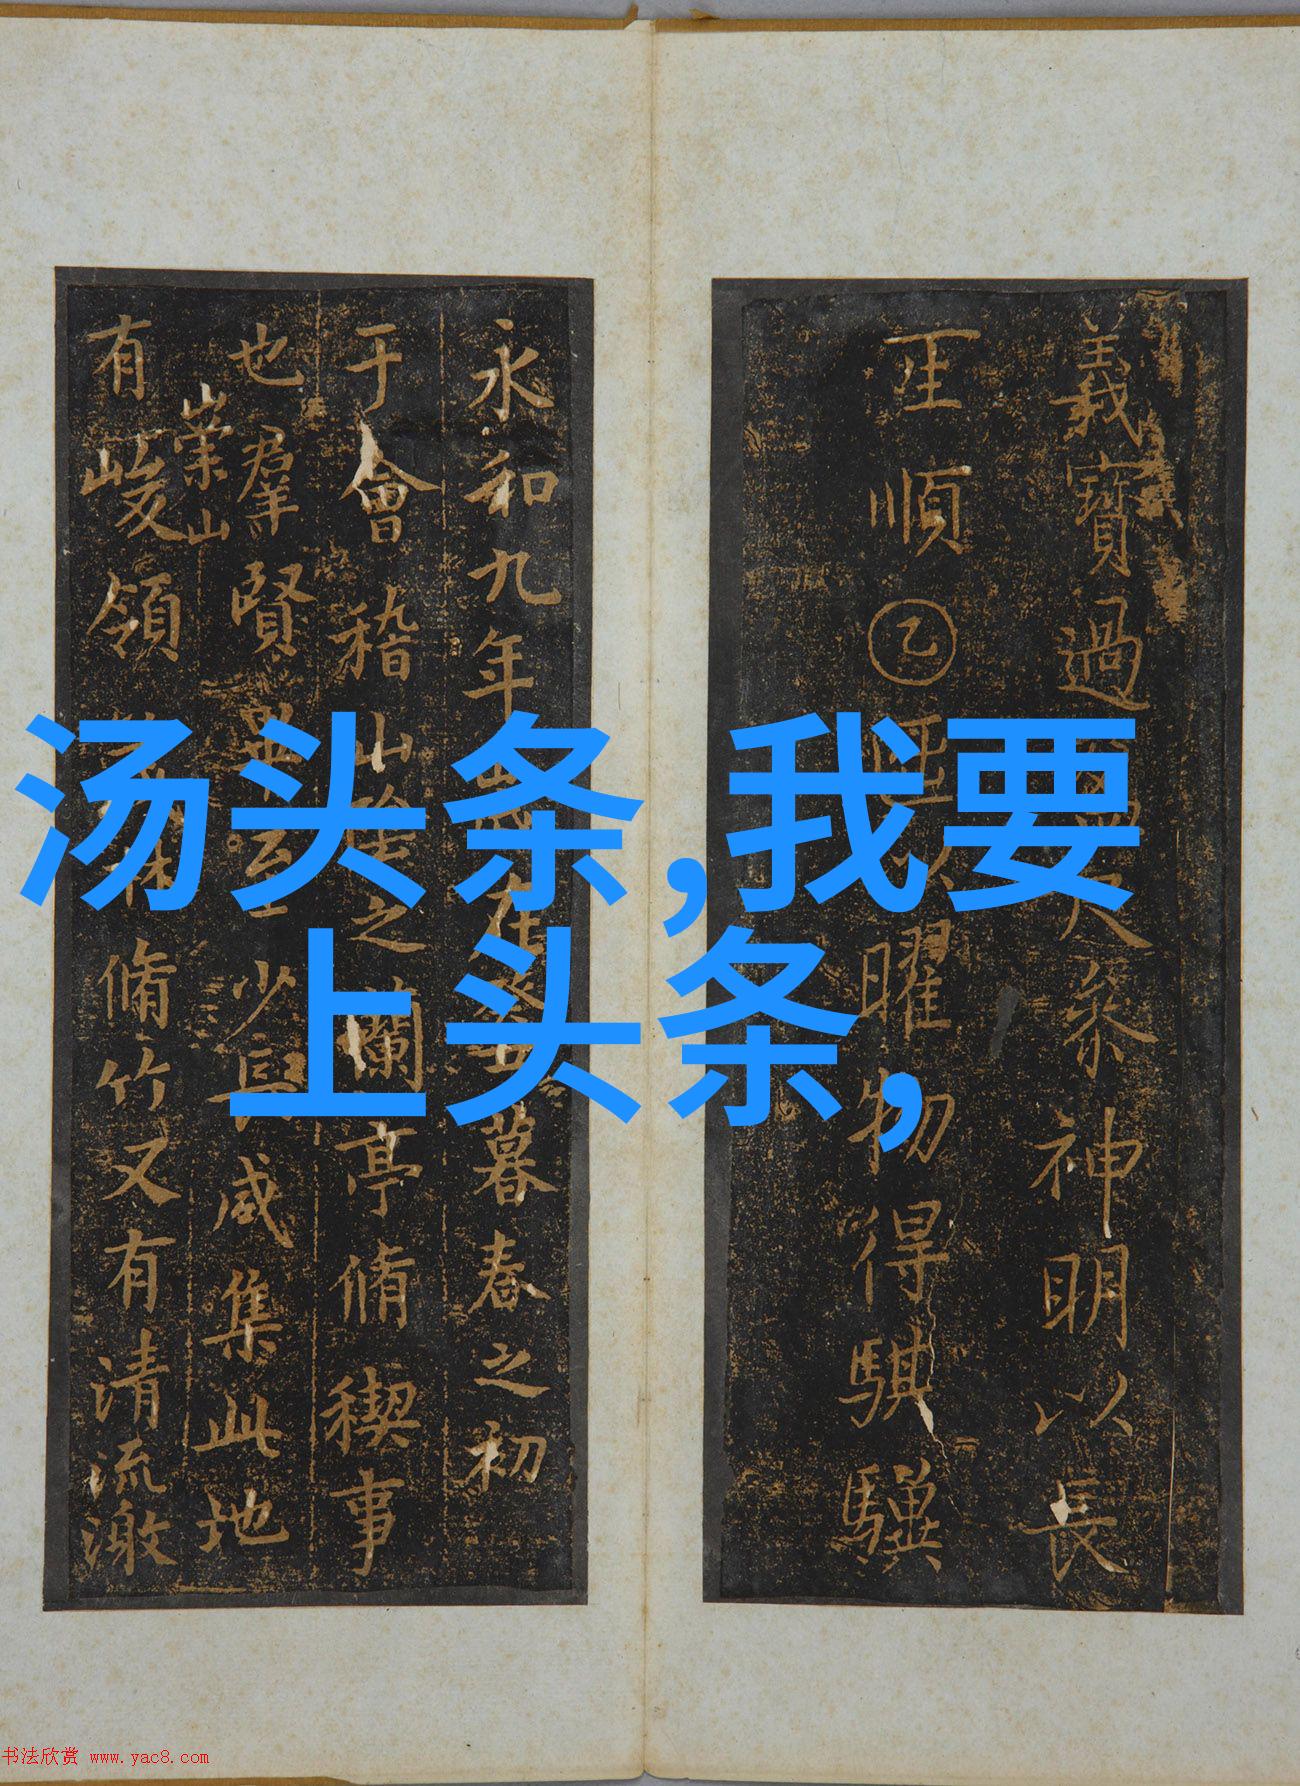 汤头条,我要
上头条,
義寶過叅神明以長
王順乙以曜物得騏驥
永和九年歲在癸丑暮春之初
于會稽山陰之蘭亭脩禊事
也羣賢畢至少長咸集此地
崇山
有峻領茂林脩竹又有清流激
书法欣赏 www.yac8.com